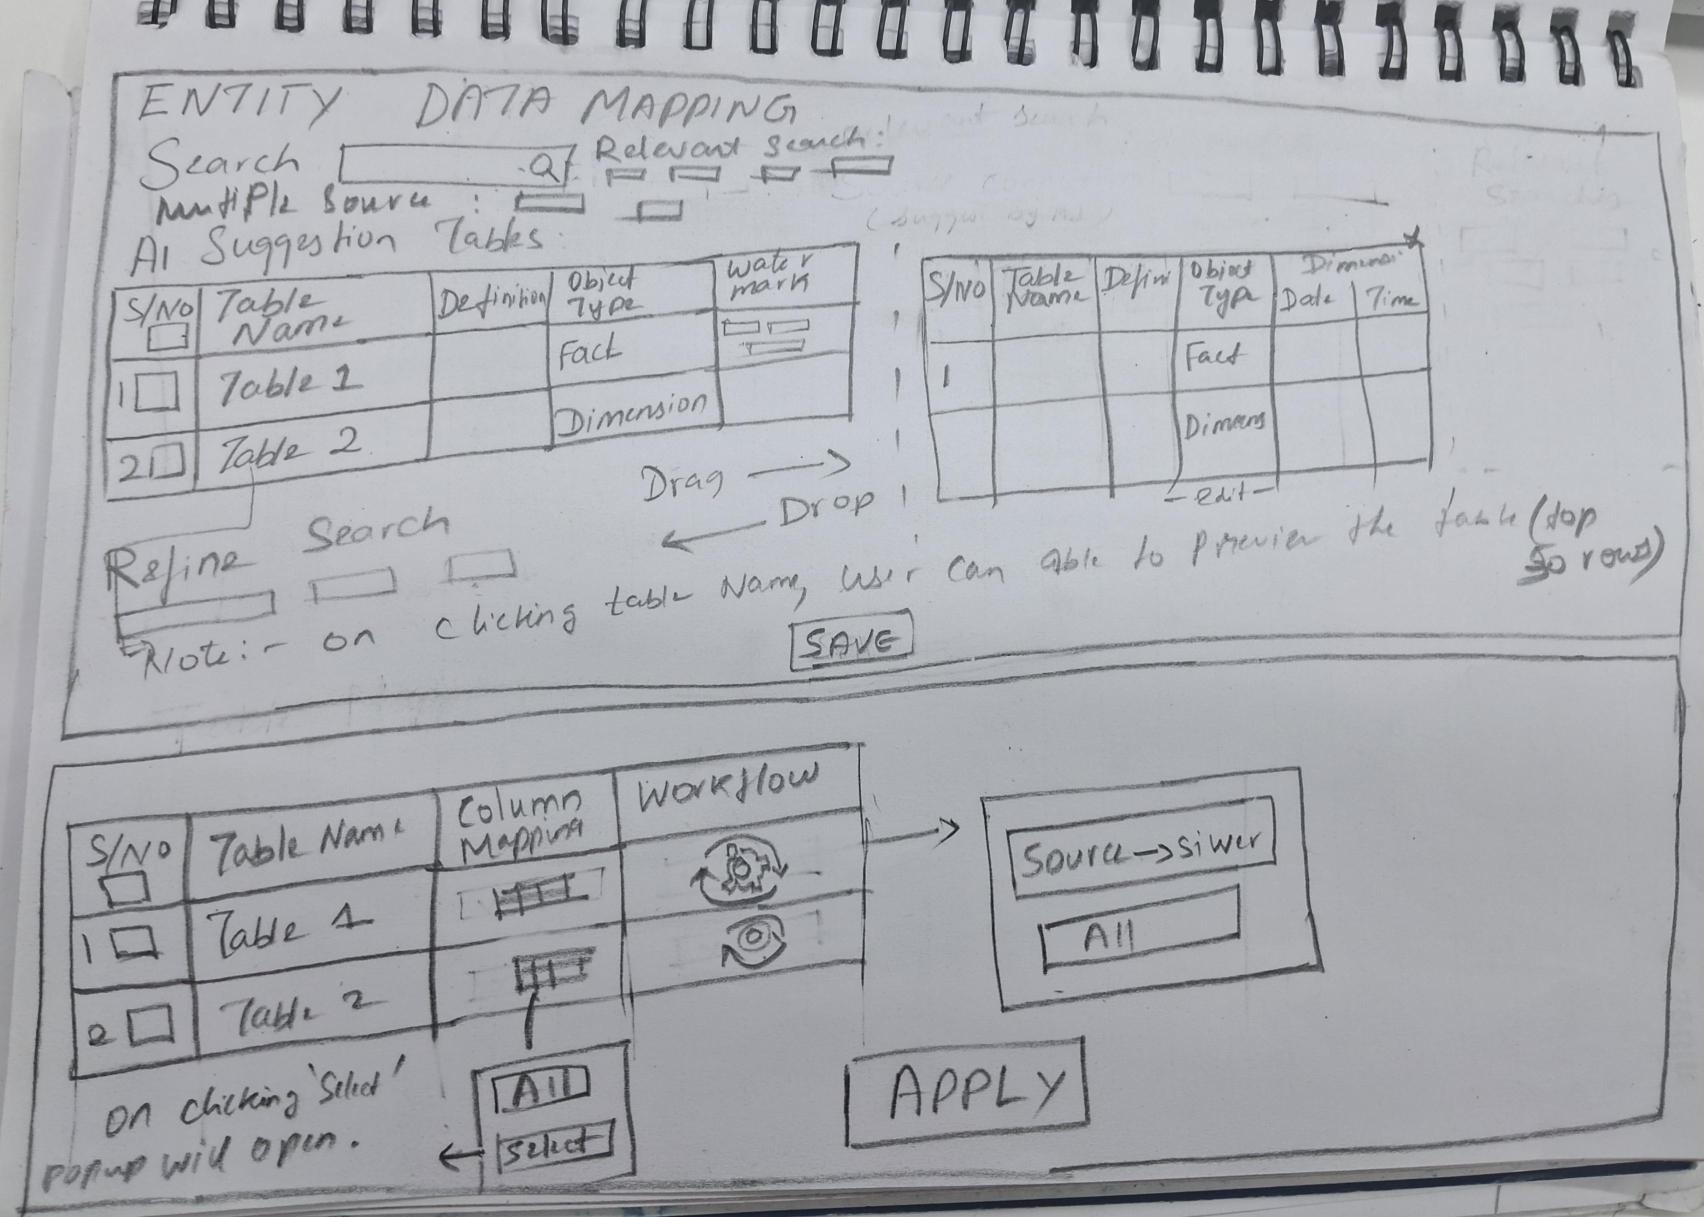 ENTITY DATA MAPPING
Search Relevant Search:
Multiple Source :
AI Suggestion Tables:
S/NO Table Name Definition Object Type Water mark
1 Table 1 Fact
2 Table 2 Dimension
S/NO Table Name Defini Object Type Dimensi Date Time
1 Fact
Dimens
- edit -
Drag →
← Drop
Refine Search
Note:- on clicking table Name, user can able to preview the table (top 50 rows)
SAVE
S/NO Table Name Column Mapping Workflow
1 Table 1
2 Table 2
Source → silver
All
All
Select
On clicking 'Select'
popup will open.
APPLY